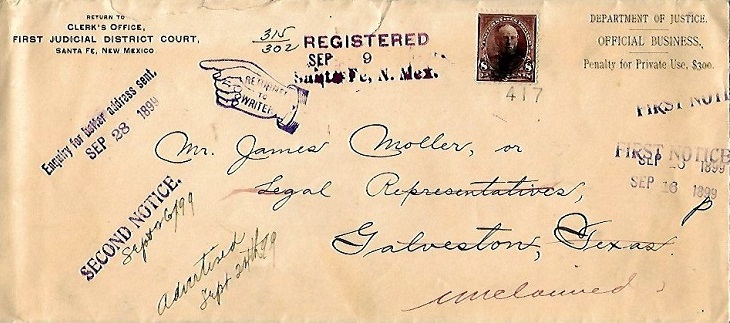 RETURN TO
CLERK'S OFFICE,
FIRST JUDICIAL DISTRICT COURT,
SANTA FE, NEW MEXICO
315
302
REGISTERED
SEP 9
Santa Fe, N. Mex.
417
DEPARTMENT OF JUSTICE.
OFFICIAL BUSINESS.
Penalty for Private Use, $300.
RETURNED
TO
WRITER
Enquiry for better address sent.
SEP 28 1899
FIRST NOTI
FIRST NOTICE
SEP 1899
SEP 16 1899
Mr. James Moller, or
Legal Representatives,
Galveston, Texas.
SECOND NOTICE.
Sept 26/99
Advertised
Sept 24th 99
unclaimed